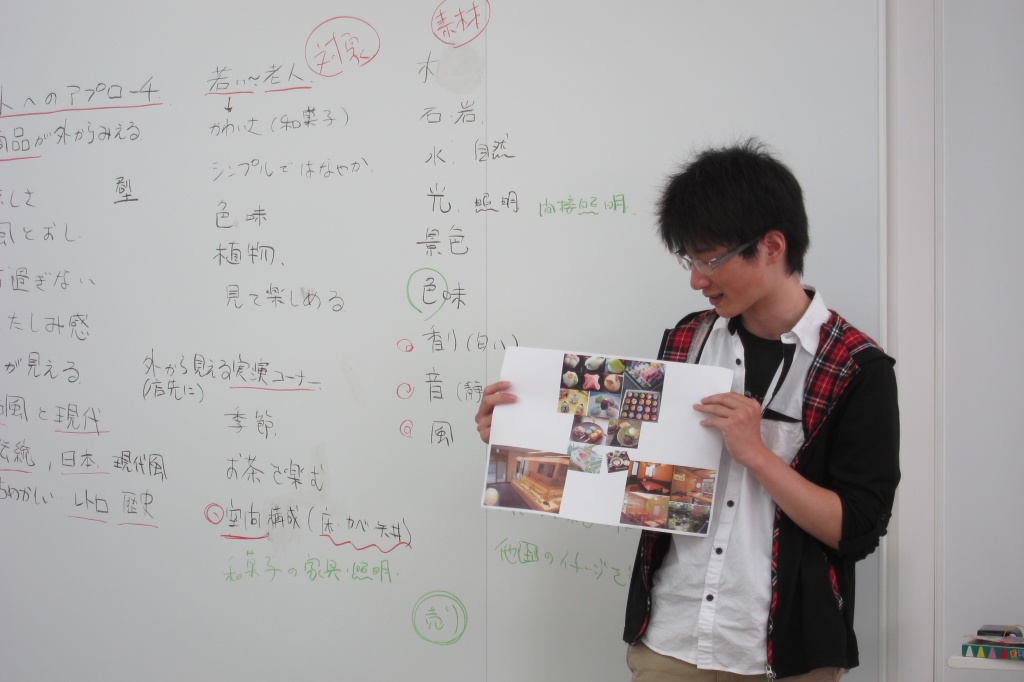 へのアプローチ
商品が外からみえる
型
風とおし
過ぎない
たしみ感
が見える
風と現代
伝統，日本，現代風
レトロ 歴史
対象
若い〜老人
↓
かわいさ（和菓子）
シンプルではなやか
色味
植物、
見て楽しめる
外から見える実演コーナー
（店先に）
季節
お茶を楽む
空間構成（床・カベ・天井）
和菓子の家具・照明
素材
木
石・岩
水、自然
光、照明 間接照明
景色
色味
香り
音（静
風
他国のイメージを
売り